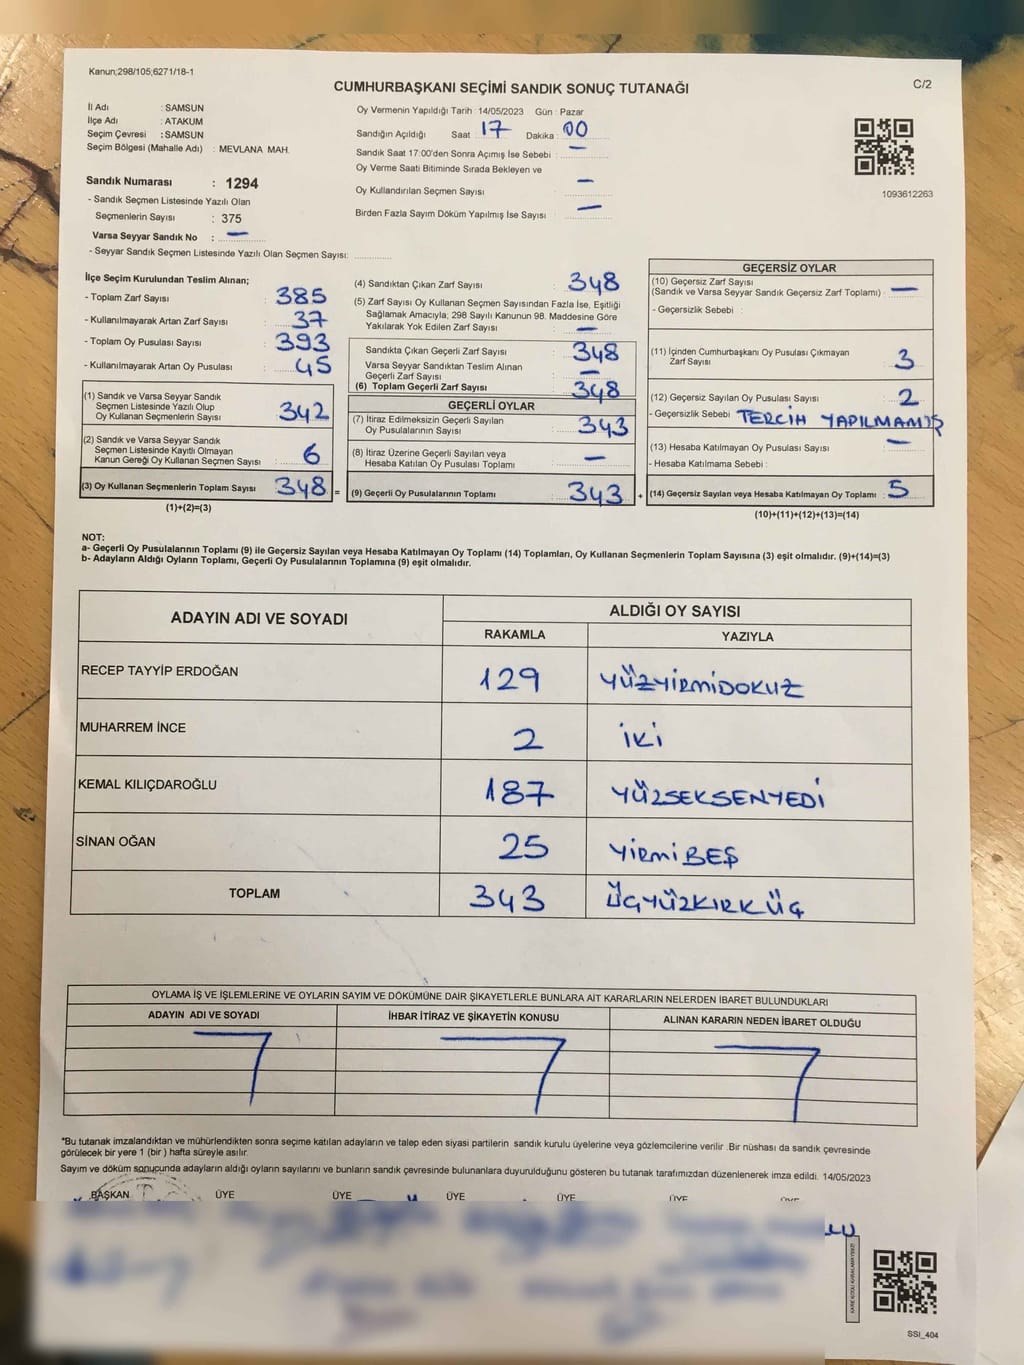 Kanun;298/105;6271/18-1
C/2
CUMHURBAŞKANI SEÇİMİ SANDIK SONUÇ TUTANAĞI
İl Adı : SAMSUN
İlçe Adı : ATAKUM
Seçim Çevresi : SAMSUN
Seçim Bölgesi (Mahalle Adı) : MEVLANA MAH.
Sandık Numarası : 1294
- Sandık Seçmen Listesinde Yazılı Olan
Seçmenlerin Sayısı : 375
Varsa Seyyar Sandık No : —
- Seyyar Sandık Seçmen Listesinde Yazılı Olan Seçmen Sayısı:
Oy Vermenin Yapıldığı Tarih : 14/05/2023 Gün : Pazar
Sandığın Açıldığı Saat : 17 Dakika : 00
Sandık Saat 17:00'den Sonra Açımış İse Sebebi : —
Oy Verme Saati Bitiminde Sırada Bekleyen ve
Oy Kullandırılan Seçmen Sayısı —
Birden Fazla Sayım Döküm Yapılmış İse Sayısı —
1093612263
İlçe Seçim Kurulundan Teslim Alınan;
- Toplam Zarf Sayısı : 385
- Kullanılmayarak Artan Zarf Sayısı : 37
- Toplam Oy Pusulası Sayısı : 393
- Kullanılmayarak Artan Oy Pusulası : 45
(1) Sandık ve Varsa Seyyar Sandık
Seçmen Listesinde Yazılı Olup
Oy Kullanan Seçmenlerin Sayısı : 342
(2) Sandık ve Varsa Seyyar Sandık
Seçmen Listesinde Kayıtlı Olmayan
Kanun Gereği Oy Kullanan Seçmen Sayısı : 6
(3) Oy Kullanan Seçmenlerin Toplam Sayısı : 348 =
(1)+(2)=(3)
(4) Sandıktan Çıkan Zarf Sayısı : 348
(5) Zarf Sayısı Oy Kullanan Seçmen Sayısından Fazla İse, Eşitliği
Sağlamak Amacıyla; 298 Sayılı Kanunun 98. Maddesine Göre
Yakılarak Yok Edilen Zarf Sayısı : —
Sandıkta Çıkan Geçerli Zarf Sayısı : 348
Varsa Seyyar Sandıktan Teslim Alınan
Geçerli Zarf Sayısı : —
(6) Toplam Geçerli Zarf Sayısı : 348
GEÇERLİ OYLAR
(7) İtiraz Edilmeksizin Geçerli Sayılan
Oy Pusulalarının Sayısı : 343
(8) İtiraz Üzerine Geçerli Sayılan veya
Hesaba Katılan Oy Pusulası Toplamı : —
(9) Geçerli Oy Pusulalarının Toplamı : 343 +
GEÇERSİZ OYLAR
(10) Geçersiz Zarf Sayısı
(Sandık ve Varsa Seyyar Sandık Geçersiz Zarf Toplamı) : —
- Geçersizlik Sebebi :
(11) İçinden Cumhurbaşkanı Oy Pusulası Çıkmayan
Zarf Sayısı : 3
(12) Geçersiz Sayılan Oy Pusulası Sayısı : 2
- Geçersizlik Sebebi : TERCİH YAPILMAMIŞ
(13) Hesaba Katılmayan Oy Pusulası Sayısı : —
- Hesaba Katılmama Sebebi :
(14) Geçersiz Sayılan veya Hesaba Katılmayan Oy Toplamı : 5
(10)+(11)+(12)+(13)=(14)
NOT:
a- Geçerli Oy Pusulalarının Toplamı (9) ile Geçersiz Sayılan veya Hesaba Katılmayan Oy Toplamı (14) Toplamları, Oy Kullanan Seçmenlerin Toplam Sayısına (3) eşit olmalıdır. (9)+(14)=(3)
b- Adayların Aldığı Oyların Toplamı, Geçerli Oy Pusulalarının Toplamına (9) eşit olmalıdır.
ADAYIN ADI VE SOYADI
ALDIĞI OY SAYISI
RAKAMLA YAZIYLA
RECEP TAYYİP ERDOĞAN 129 YÜZYİRMİDOKUZ
MUHARREM İNCE 2 İKİ
KEMAL KILIÇDAROĞLU 187 YÜZSEKSENYEDİ
SİNAN OĞAN 25 YİRMİBEŞ
TOPLAM 343 ÜÇYÜZKIRKÜÇ
OYLAMA İŞ VE İŞLEMLERİNE VE OYLARIN SAYIM VE DÖKÜMÜNE DAİR ŞİKAYETLERLE BUNLARA AİT KARARLARIN NELERDEN İBARET BULUNDUKLARI
ADAYIN ADI VE SOYADI İHBAR İTİRAZ VE ŞİKAYETİN KONUSU ALINAN KARARIN NEDEN İBARET OLDUĞU
*Bu tutanak imzalandıktan ve mühürlendikten sonra seçime katılan adayların ve talep eden siyasi partilerin sandık kurulu üyelerine veya gözlemcilerine verilir .Bir nüshası da sandık çevresinde
görülecek bir yere 1 (bir ) hafta süreyle asılır.
Sayım ve döküm sonucunda adayların aldığı oyların sayılarını ve bunların sandık çevresinde bulunanlara duyurulduğunu gösteren bu tutanak tarafımızdan düzenlenerek imza edildi. 14/05/2023
BAŞKAN ÜYE ÜYE ÜYE ÜYE ÜYE ÜYE
SSİ_404